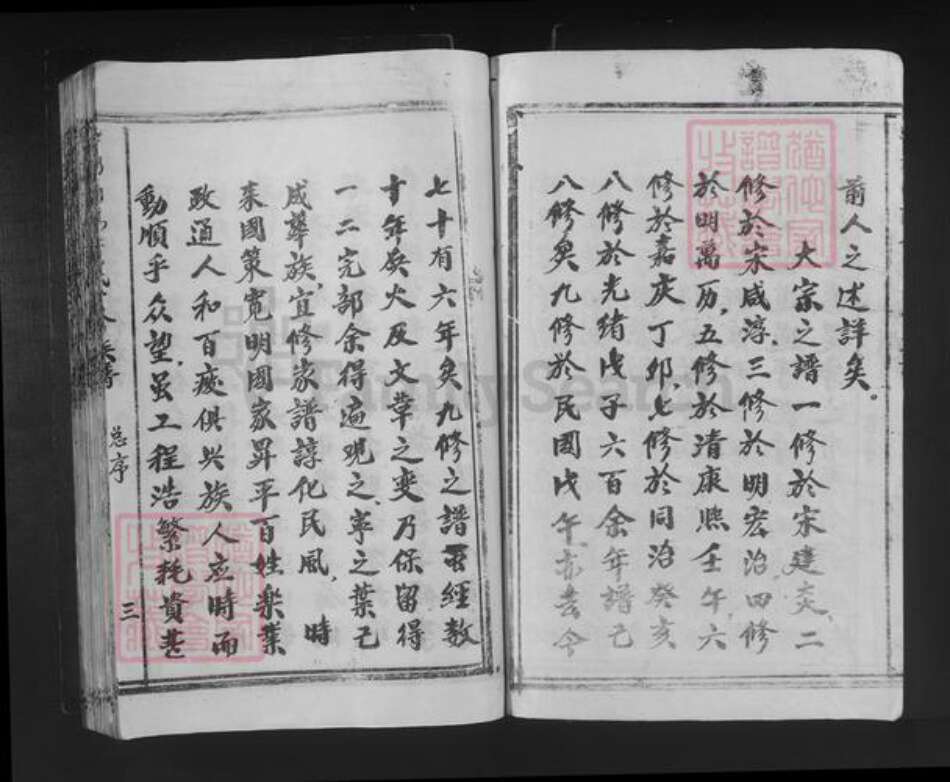 前人之述詳矣。
大宗之譜一修於宋建炎、二
修於宋咸淳、三修於明宏治、四修
於明萬历、五修於清康熙壬午、六
修於嘉庆丁卯、七修於同治癸亥
八修於光绪戊子六百余年譜已
八修矣九修於民國戊午、亦去今
七十有六年矣九修之譜虽經数
十年兵火及文革之变乃保留得
一二完部余得遍观之、寧之葉已
成華族、宜修家譜諄化民風、時
来國策寛明國家昇平百姓楽業
政通人和百废俱兴族人应時而
動順乎众望、虽工程浩繁耗資甚
总序
三
FamilySearch